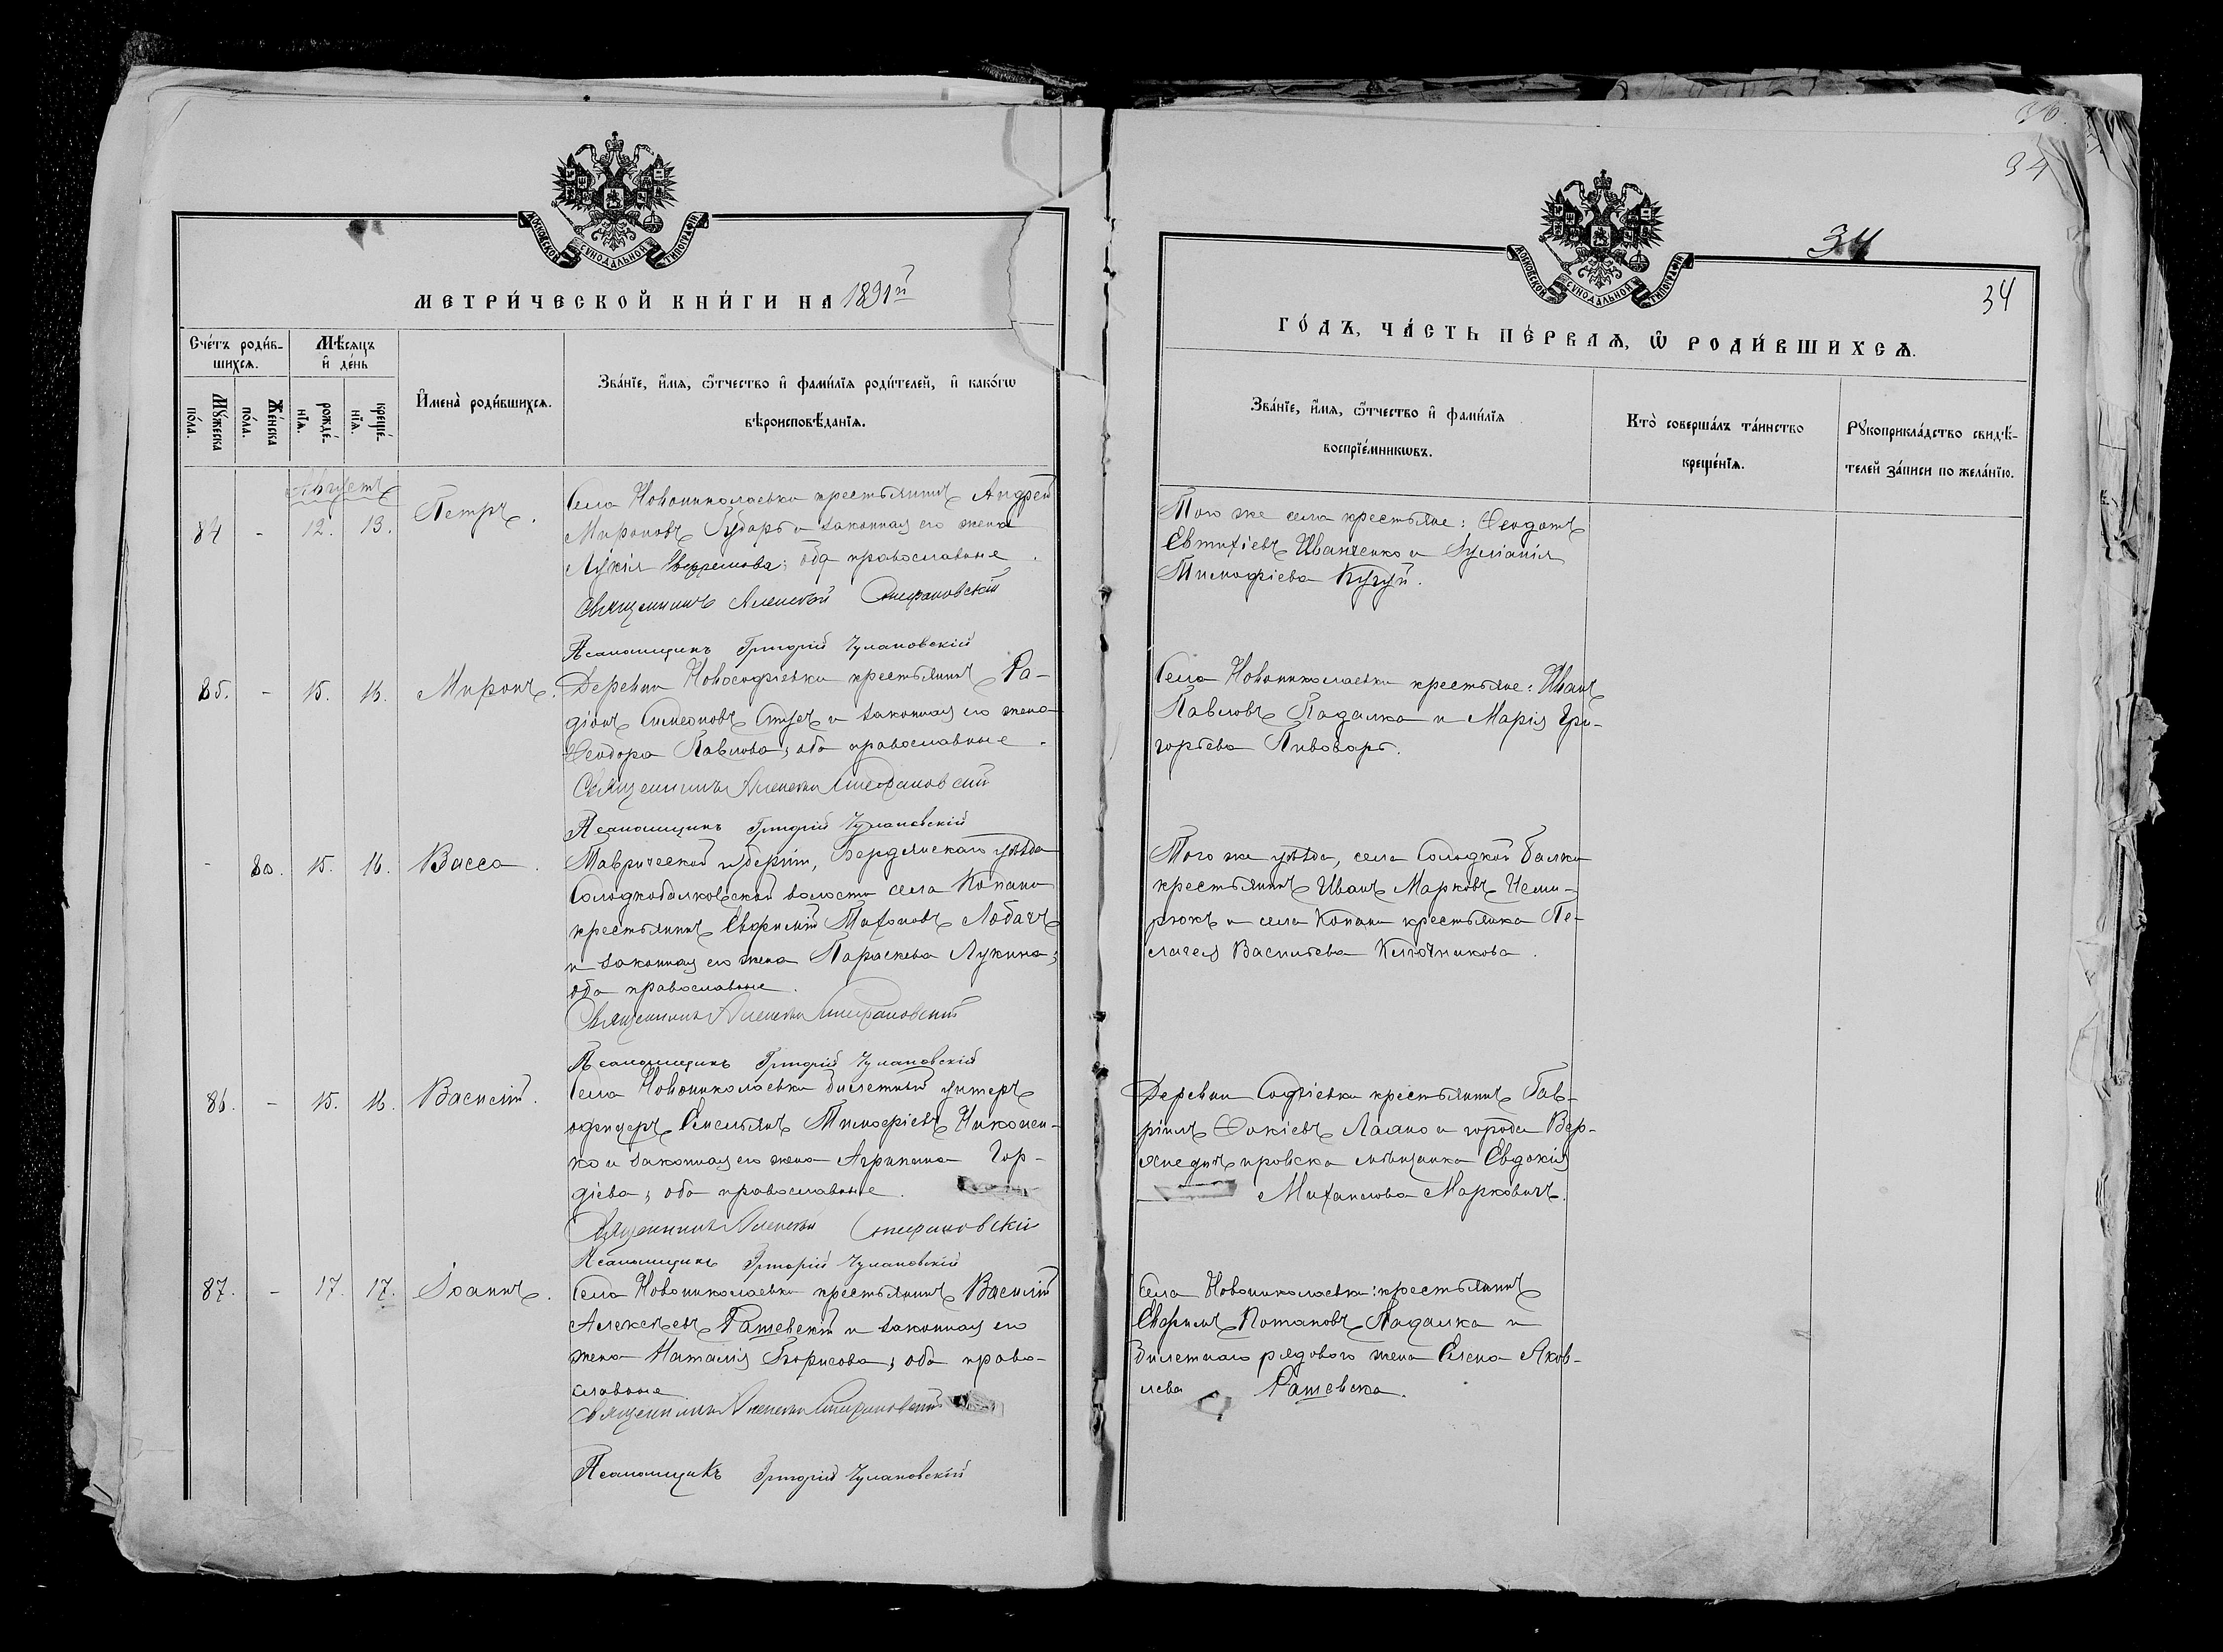 36
34
34
34
МОСКОВСКОЙ СѴНОДАЛЬНОЙ ТИПОГРАФІИ
МЕТРИ́ЧЕСКОЙ КНИ́ГИ НА 1891й
Сче́тъ роди́в-
шихсѧ.
Мѣ́сѧцъ
и҆ де́нь
Мꙋ́жеска
по́ла.
Же́нска
по́ла.
рожде́-
нїѧ.
креще́-
нїѧ.
И҆мена̀ роди́вшихсѧ.
Зва́нїе, и҆́мѧ, ѻ҆́тчество и҆ фами́лїѧ роди́телей, и҆ како́гѡ
вѣроисповѣ́данїѧ.
Августъ
84 - 12. 13. Петръ.
Села Новониколаевки крестьянинъ Андрей
Мироновъ и законная его жена
Лукія Ефремова; оба православные.
Священникъ Алексей
Псаломщикъ Григорій Чулановскій
85. - 15. 16. Миронъ.
Деревни Новософіевки крестьянинъ Ра-
діонъ Симеоновъ и законная его жена
Ѳеодора Павлова; оба православные.
Священникъ Алексей
Псаломщикъ Григорій Чулановскій
- 80. 15. 16. Васса.
Таврической губерніи, Бердянскаго уѣзда
Солодкобалковской волости села Копани
крестьянинъ Евфимій Лобачъ
и законная его жена Параскева Лукина;
оба православные.
Священникъ Алексей
Псаломщикъ Григорій Чулановскій
86. - 15. 16. Василій.
Села Новониколаевки билетный унтеръ
офицеръ Емельянъ Тимофіевъ Никонен-
ко и законная его жена Агрипина Гор-
діева; оба православные.
Священникъ Алексей
Псаломщикъ Григорій Чулановскій
87. - 17. 17. Іоаннъ.
Села Новониколаевки крестьянинъ Василій
Алексѣевъ Рашевскій и законная его
жена Наталія Борисова; оба право-
славные
Священникъ Алексей
Псаломщикъ Григорій Чулановскій
МОСКОВСКОЙ СѴНОДАЛЬНОЙ ТИПОГРАФІИ
ГО́ДЪ, ЧА́СТЬ ПЕ́РВАѦ, Ѡ҆ РОДИ́ВШИХСѦ.
Зва́нїе, и҆́мѧ, ѻ҆́тчество и҆ фами́лїѧ
воспрїе́мникѡвъ.
Кто̀ соверша́лъ та́инство
креще́нїѧ.
Рꙋкоприкла́дство свидѣ́-
телей за́писи по жела́нїю.
Того же села крестьяне: Ѳеодотъ
Евтихіевъ Иванченко и Іуліанія
Тимофіева Кугуй.
Села Новониколаевки крестьяне: Иванъ
Павловъ Падалка и Марія Гри-
горьева Пивоваръ.
Того же уѣзда, села Солодкой Балки
крестьянинъ Иванъ Марковъ Неми-
рюкъ и села Копани крестьянка Пе-
лагея Васильева Ключникова.
Деревни Софіевки крестьянинъ Гав-
ріилъ Фокіевъ и города Вер-
хнеднѣпровска мѣщанка Евдокія
Михаилова Марковичъ.
Села Новониколаевки: крестьянинъ
Евфимъ Потаповъ Падалка и
билетнаго рядового жена Елена Яков-
лева Рашевска.